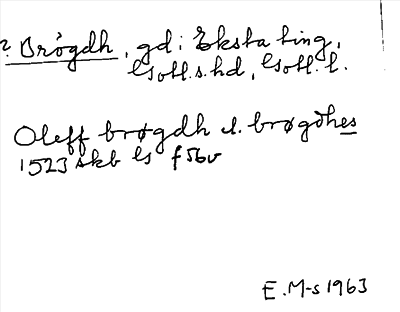 ? Brøgdh, gd i Eksta ting,
Gotl. s. hd, Gotl. l.
Oleff brøgdh el. brøgdhes
1523 skb G f 56v
E. M-s 1963